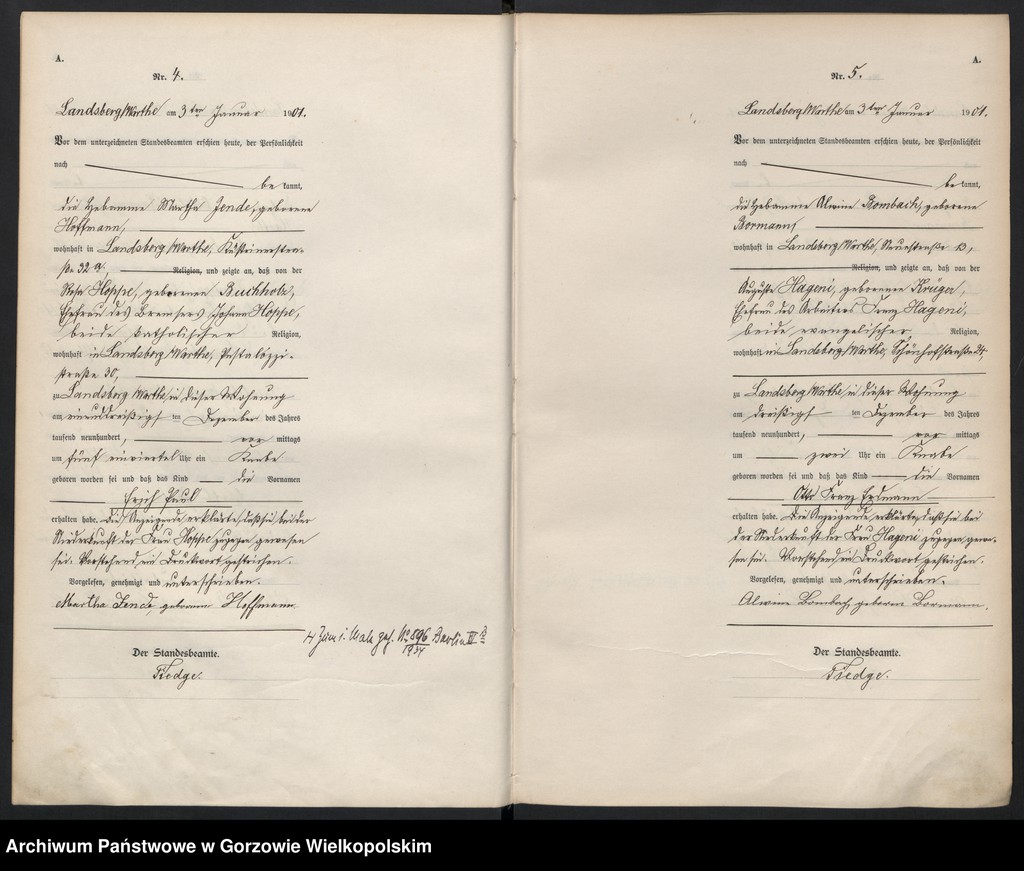 A.
Nr. 4.
Landsberg/Warthe am 3ten Januar 1901.
Vor dem unterzeichneten Standesbeamten erschien heute, der Persönlichkeit
nach
bekannt,
die Hebamme Martha Jende, geborene
Hoffmann,
wohnhaft in Landsberg/Warthe, Küstrinerstra-
ße 32 a, Religion, und zeigte an, daß von der
Rosa Hoppe, geborenen Buchholz,
Ehefrau des Bremsers Johann Hoppe,
beide katholischer Religion,
wohnhaft in Landsberg/Warthe, Pestalozzi-
straße 30,
zu Landsberg/Warthe, in dieser Wohnung
am einunddreißigsten Dezember des Jahres
tausend neunhundert, vor mittags
um fünf einviertel Uhr ein Knabe
geboren worden sei und daß das Kind die Vornamen
Erich Paul
erhalten habe. Die Anzeigende erklärte, daß sie bei der
Niederkunft der Frau Hoppe zugegen gewesen
sei. Vorstehend ein Druckwort gestrichen.
Vorgelesen, genehmigt und unterschrieben.
Martha Jende geborene Hoffmann
Der Standesbeamte.
Tiedge.
Zum 1. Male geh. No 896/1934 Berlin III
A.
Nr. 5.
Landsberg/Warthe am 3ten Januar 1901.
Vor dem unterzeichneten Standesbeamten erschien heute, der Persönlichkeit
nach
bekannt,
die Hebamme Alwine Bombach, geborene
Bormann,
wohnhaft in Landsberg/Warthe, Neuestraße 13,
Religion, und zeigte an, daß von der
Auguste Hageni, geborenen Krüger,
Ehefrau des Arbeiters Franz Hageni,
beide evangelischer Religion,
wohnhaft in Landsberg/Warthe, Schönhofstraße 24,
zu Landsberg/Warthe, in dieser Wohnung
am dreißigsten Dezember des Jahres
tausend neunhundert, vor mittags
um zwei Uhr ein Knabe
geboren worden sei und daß das Kind die Vornamen
Otto Franz Erdmann
erhalten habe. Die Anzeigende erklärte, daß sie bei
der Niederkunft der Frau Hageni zugegen gewe-
sen sei. Vorstehend ein Druckwort gestrichen.
Vorgelesen, genehmigt und unterschrieben.
Alwine Bombach, geborene Bormann.
Der Standesbeamte.
Tiedge.
Archiwum Państwowe w Gorzowie Wielkopolskim